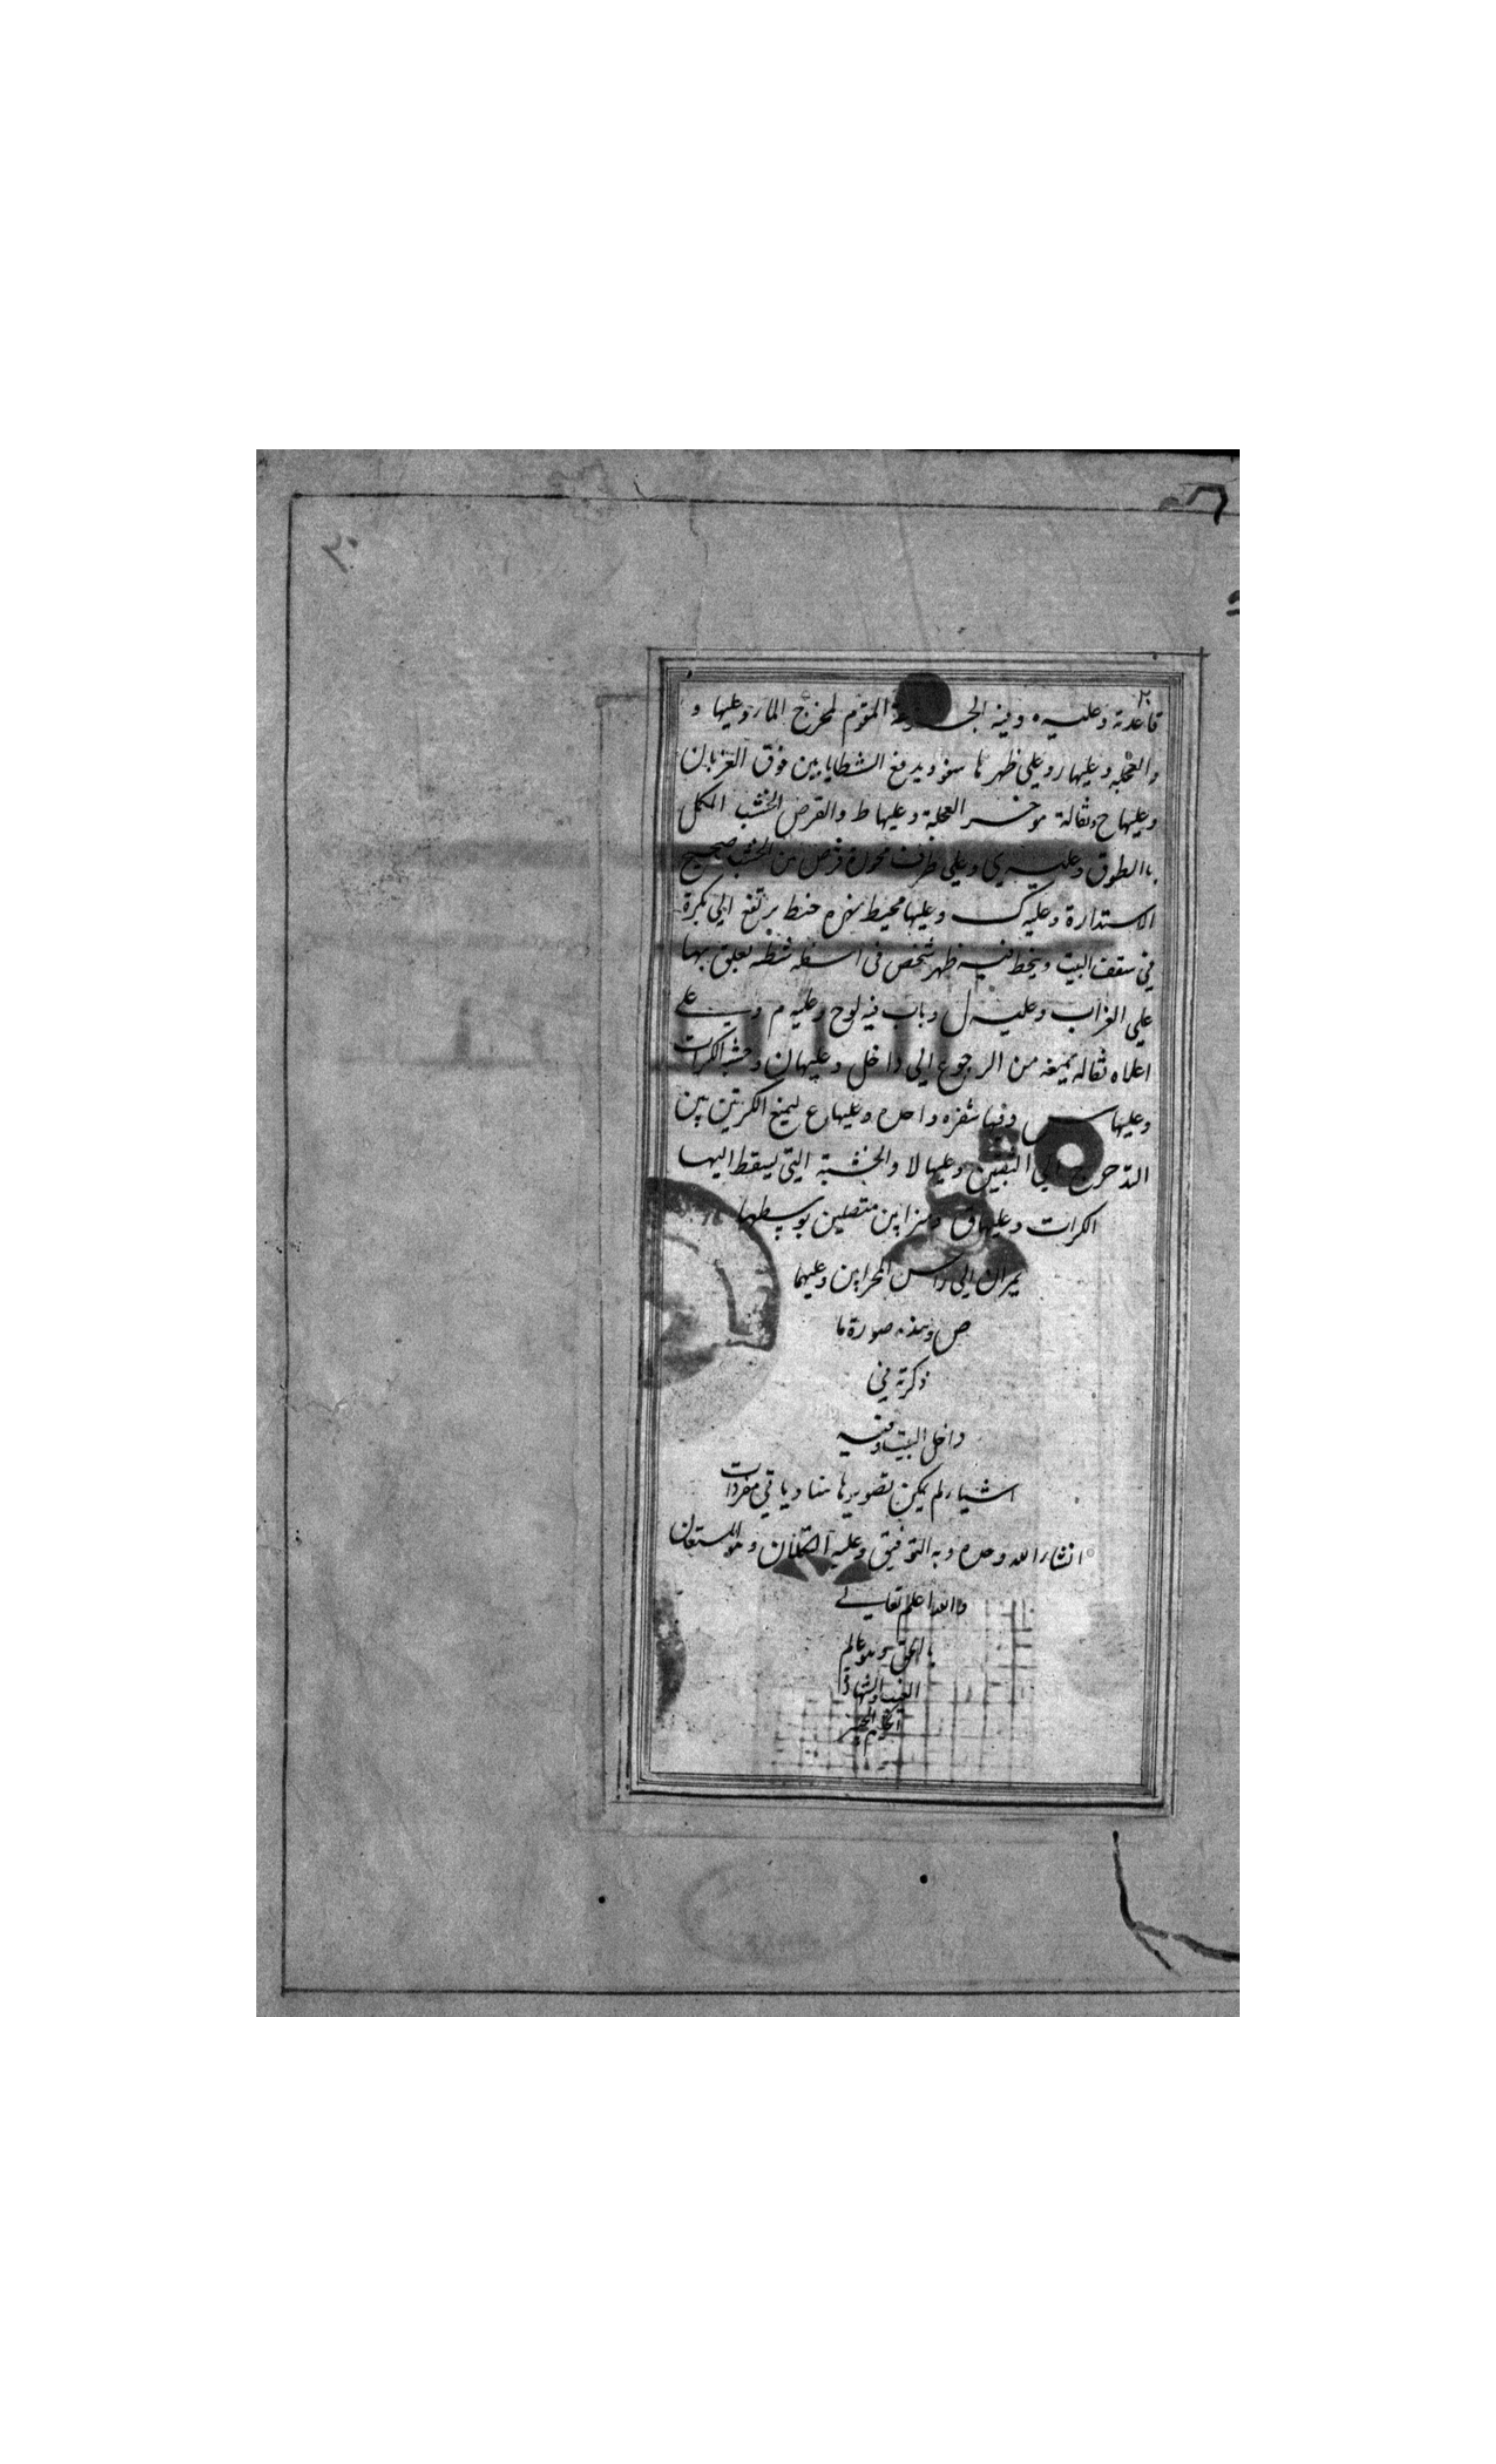 ٢٠
قاعدته وعليه ه وفيه المقوم لمخرج الماء وعليها و
والعجلة وعليها ز وعلى ظهرها ويدفع الشظايا بين فوق الغربان
وعليها ح وثقالة مؤخر العجلة وعليها ط والقرص الخشب المكمل
بالطوق وعليه ي وعلى طرف محوره قرص من الخشب صحيح
الاستدارة وعليه ك وعليها محيط خيط يرتفع الى بكرة
في سقف البيت فيه ظهر شخص في اسفله شظية يعلق بها
على الغراب وعليه ل وباب فيه لوح وعليه م وعلى
اعلاه ثقاله يمنعه من الرجوع الى داخل وعليها ن وخشبة الكرات
وعليها س وفيها واحده وعليها ع ليمنع الكرتين بين
التدحرج الى الثقبين وعليها لا والخشبة التي يسقط اليها
الكرات وعليها ق وميزابين متصلين بوسطها
يمران الى راس المحرابين وعليهما
ص وهذه صورة ما
ذكرته في
داخل البيت وفيه
اشياء لم يكن تصويرها هنا وياتي مفردات
انشاء الله وحده وبه التوفيق وعليه التكلان وهو المستعان
والله اعلم تعالى
بالحق وهو عالم
الغيب والشهادة
الحكيم الخبير